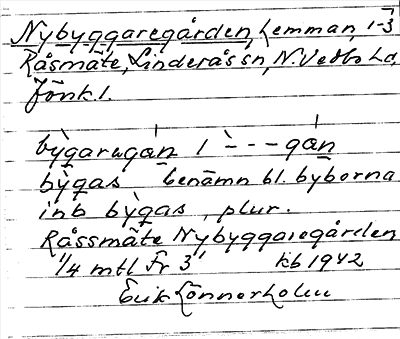 Nybyggaregården, Lemman, 1-3
Råsmåte, Linderås sn, N. Vedbo hd,
Jönk. l.
by̆garəgan 1 - - - gan
bỳgas benämn bl. byborna
inb bỳgas, plur.
Råssmåte Nybyggaregården
1/4 mtl Fr 3¹ kb 1942
Erik Lönnerholm